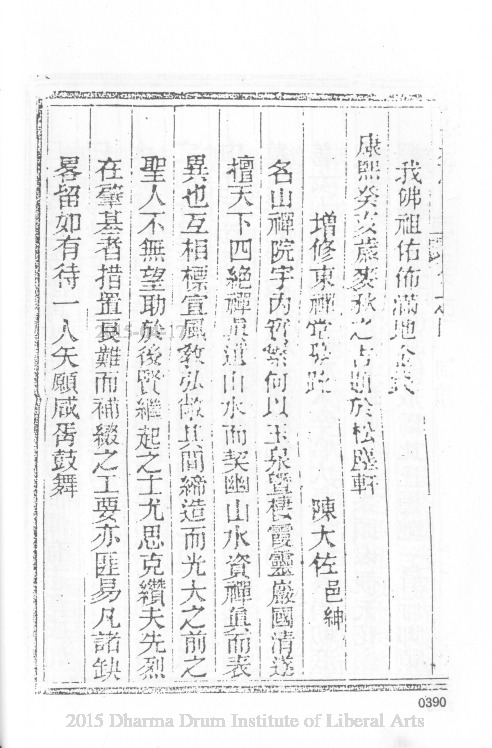 我佛祖佑佈滿地金	
康熙癸亥歲麥秋之吉題於松	軒
增修東禪堂募疏
陳大佐邑紳
名山禪院宇内實繁何以玉泉暨棲霞靈巖國清遂
擅天下四絕禪眞適山水而契幽山水資禪眞而表
異也互相標宣風教弘敞其間締造而光大之前之
聖人不無望助於後賢繼起之士尤思克纘夫先烈
在肇基者措置艱難而補綴之工要亦匪易凡諸缺
畧留如有待一人矢願咸胥鼓舞
0390
2015 Dharma Drum Institute of Liberal Arts